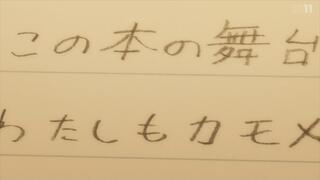 この本の舞台
わたしもカモメ